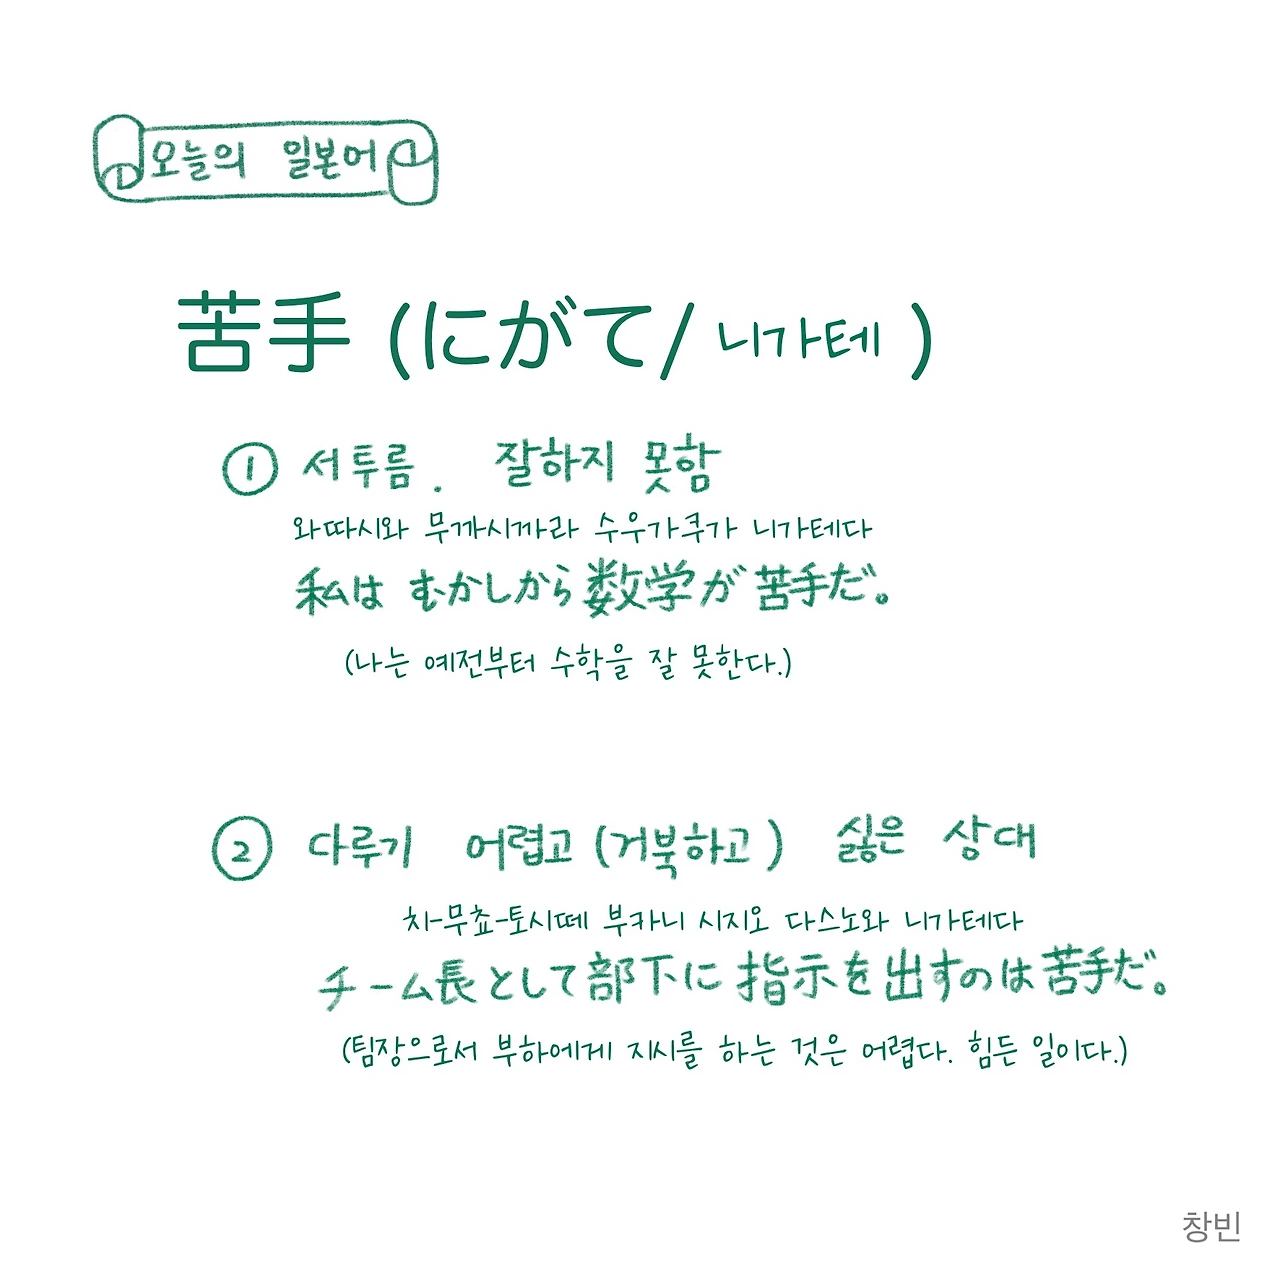 오늘의 일본어
苦手 (にがて/ 니가테 )
① 서투름. 잘하지 못함
와따시와 무까시까라 수우가쿠가 니가테다
私は むかしから 数学が 苦手だ。
(나는 예전부터 수학을 잘 못한다.)
② 다루기 어렵고 (거북하고) 싫은 상대
치-무쵸-토시떼 부카니 시지오 다스노와 니가테다
チーム長として部下に 指示を 出すのは苦手だ。
(팀장으로서 부하에게 지시를 하는 것은 어렵다. 힘든 일이다.)
창빈